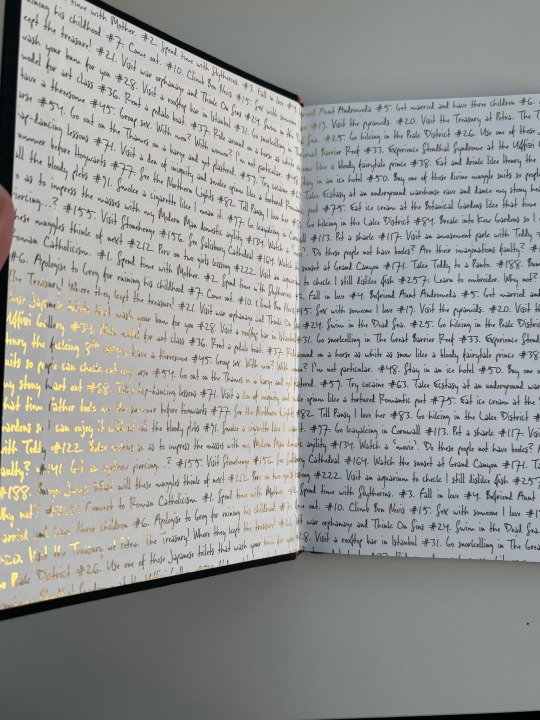 time with Mother. #2. Spend time with Slytherins. #3. Fall in love #4
ining his childhood #7. Come out. #10. Climb Ben Nevis #15. Sex with someone
kept the treasure! #21. Visit war orphanage and Think On Sins #24. Swim in the
wash your bum for you #28. Visit a rooftop bar in Istanbul #31. Go snorkelling
model for art class #36. Rent a pedalo boat #37. Ride around on a horse as white
have a threesome #45. Group sex. With men? With women? I'm not particular.
#54. Go out on the Thames on a barge and get plastered. #57. Try cocaine
tap-dancing lessons #71. Visit a den of iniquity and smoke opium like a tortured Romantic
summer before Hogwarts #77. See the Northern Lights #82. Tell Pansy I love her
all the bloody plebs #91. Smoke a cigarette like I mean it. #97. Go kayaking in Cornwall
so as to impress the masses with my Modern Man domestic agility #134. Watch a
piercing...? #155. Visit Stonehenge #156. See Salisbury Cathedral #164. Watch the
these muggles think of next #212. Perv on two girls lesson #222. Visit an aquarium
Roman Catholicism. #1. Spend time with Mother. #2. Spend time with Slytherins
#6. Apologise to Greg for ruining his childhood #7. Come out. #10. Climb Ben Nevis
The Treasury! Where they kept the treasure! #21. Visit war orphanage and Think On
those Japanese toilets that wash your bum for you #28. Visit a rooftop bar in Istanbul
Uffizi Gallery #34. Nude model for art class #36. Rent a pedalo boat #37. Ride
Henry the fucking 8th have a threesome #45. Group sex. With men? With women?
suits so people can check out my arse #54. Go out on the Thames on a barge and get plastered
my stony heart out #68. Take tap-dancing lessons #71. Visit a den of iniquity and smoke
that time Father took me the summer before Hogwarts #77. See the Northern Lights
Gardens so I can enjoy it without all the bloody plebs #91. Smoke a cigarette like I
with Teddy #122. Bake so as to impress the masses with my Modern Man domestic
faulty? #141. Get an piercing...? #155. Visit Stonehenge #156. See Salisbury
#188. Bungee Jump. Whatever will these muggles think of next #212. Perv on two girls
Why not? Convert to Roman Catholicism. #1. Spend time with Mother
married and have three children #6. Apologise to Greg for ruining his childhood #7.
#20. Visit the Treasury at Petra. The Treasury! Where they kept the treasure! #21
the Peak District #26. Use one of those Japanese toilets that wash your bum for you
Aunt Andromeda #5. Get married and have three children #6.
#19. Visit the pyramids. #20. Visit the Treasury at Petra. The
Sea. #25. Go hiking in the Peak District #26. Use one of those
Great Barrier Reef #33. Experience Stendhal Syndrome at the Uffizi
snow like a bloody fairytale prince #38. Eat and drink like Henry the
Stay in an ice hotel #50. Buy one of those divine muggle suits so people
Take Ecstasy at an underground warehouse rave and dance my stony heart
#75. Eat ice cream at the Botanical Gardens like that time
Go hiking in the Lake District #84. Break into Kew Gardens so I
#113. Pet a shark #117. Visit an amusement park with Teddy
Do these people not have bodies? Are their imaginations faulty?
sunset at Grand Canyon #171. Take Teddy to a Panto. #188. Bungee
to check I still dislike fish #257. Learn to embroider. Why not?
#3. Fall in love #4. Befriend Aunt Andromeda #5. Get married and
#15. Sex with someone I love #19. Visit the pyramids. #20. Visit the
#24. Swim in the Dead Sea. #25. Go hiking in the Peak District
#31. Go snorkelling in The Great Barrier Reef #33. Experience Stendhal
around on a horse as white as snow like a bloody fairytale prince #38.
I'm not particular. #48. Stay in an ice hotel #50. Buy one of those
#57. Try cocaine #63. Take Ecstasy at an underground warehouse
opium like a tortured Romantic poet #75. Eat ice cream at the
#82. Tell Pansy I love her #83. Go hiking in the Lake District
#97. Go kayaking in Cornwall #113. Pet a shark #117. Visit
agility #134. Watch a "movie". Do these people not have bodies?
Cathedral #164. Watch the sunset at Grand Canyon #171. Take Teddy
#222. Visit an aquarium to check I still dislike fish #257
Spend time with Slytherins. #3. Fall in love #4. Befriend Aunt
out. #10. Climb Ben Nevis #15. Sex with someone I love #19
war orphanage and Think On Sins #24. Swim in the Dead Sea.
#28. Visit a rooftop bar in Istanbul #31. Go snorkelling in The Great